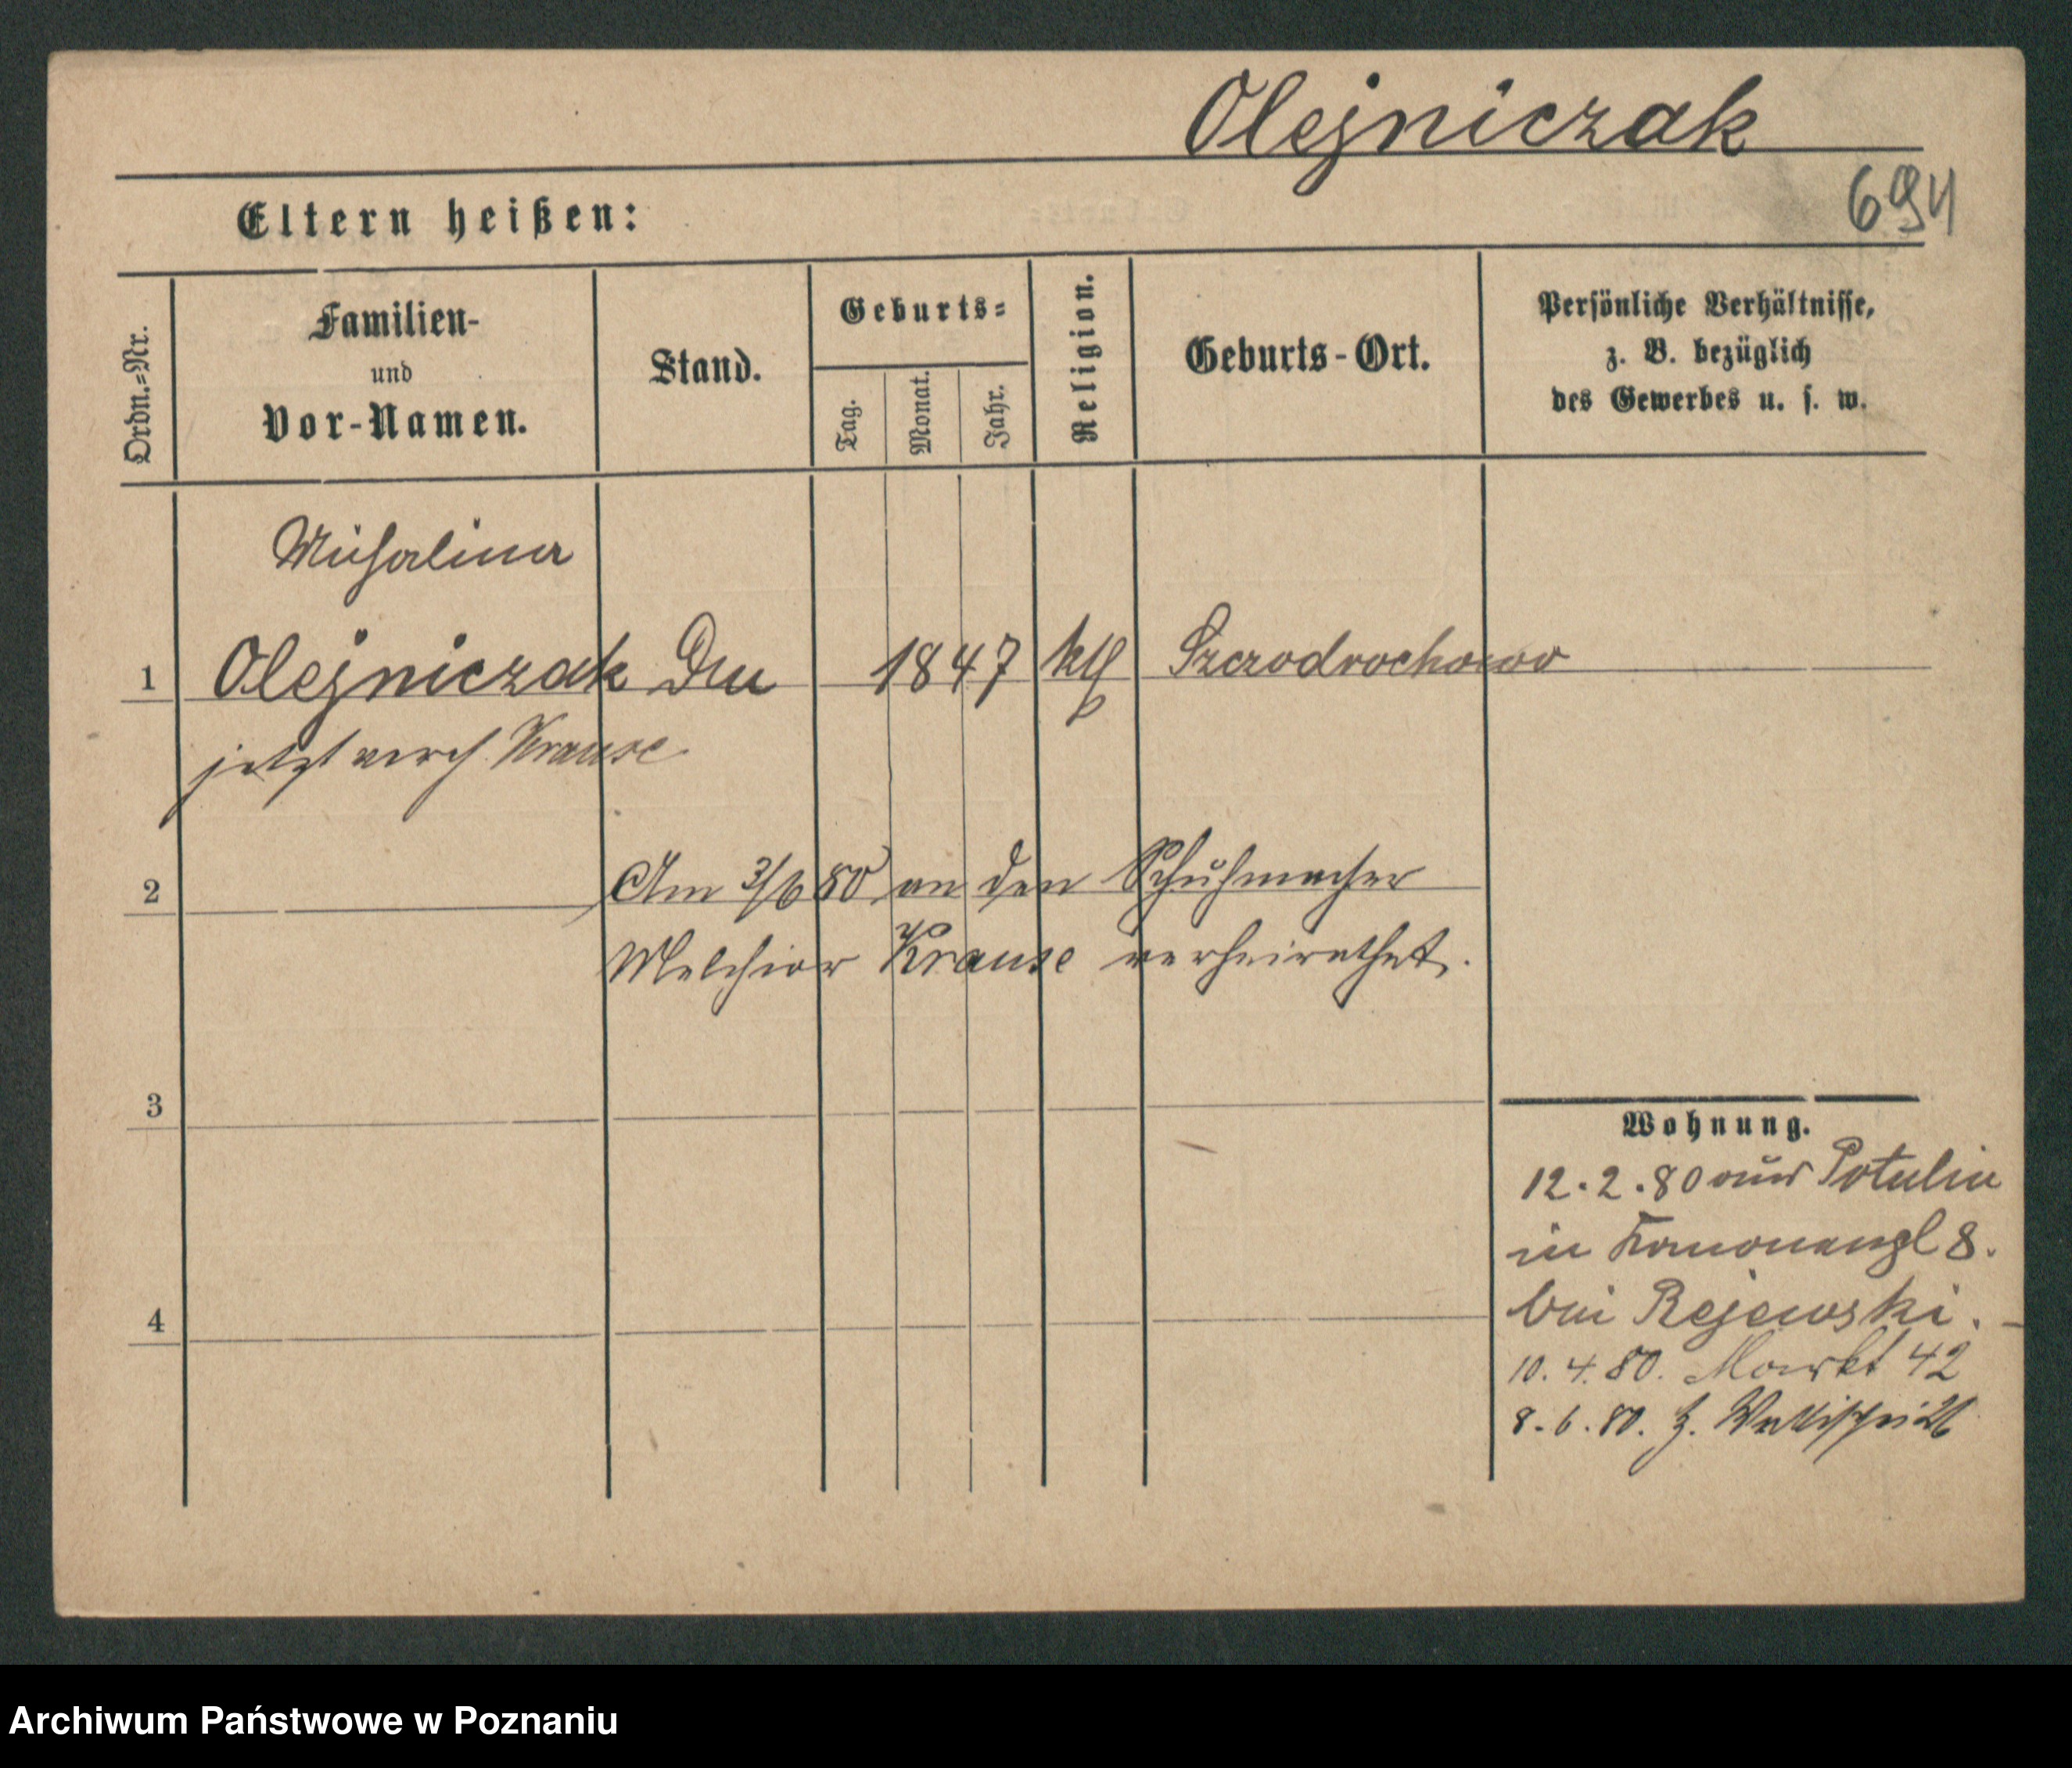 Olejniczak
694
Eltern heißen:
Ordn.=Nr.
Familien-
und
Vor-Namen.
Stand.
Geburts=
Tag.
Monat.
Jahr.
Religion.
Geburts-Ort.
Persönliche Verhältnisse,
z. B. bezüglich
des Gewerbes u. s. w.
Michalina
1 Olejniczak 1847 kth Szczodrochowo
jetzt verh Krause
2 Am 3/6 80 an den Schuhmacher
Melchior Krause verheirathet.
3
4
Wohnung.
12.2.80 aus Potulin
in 8.
bei Rejewski.
10.4.80. Markt 42
8.6.80. z. Wallischei
Archiwum Państwowe w Poznaniu